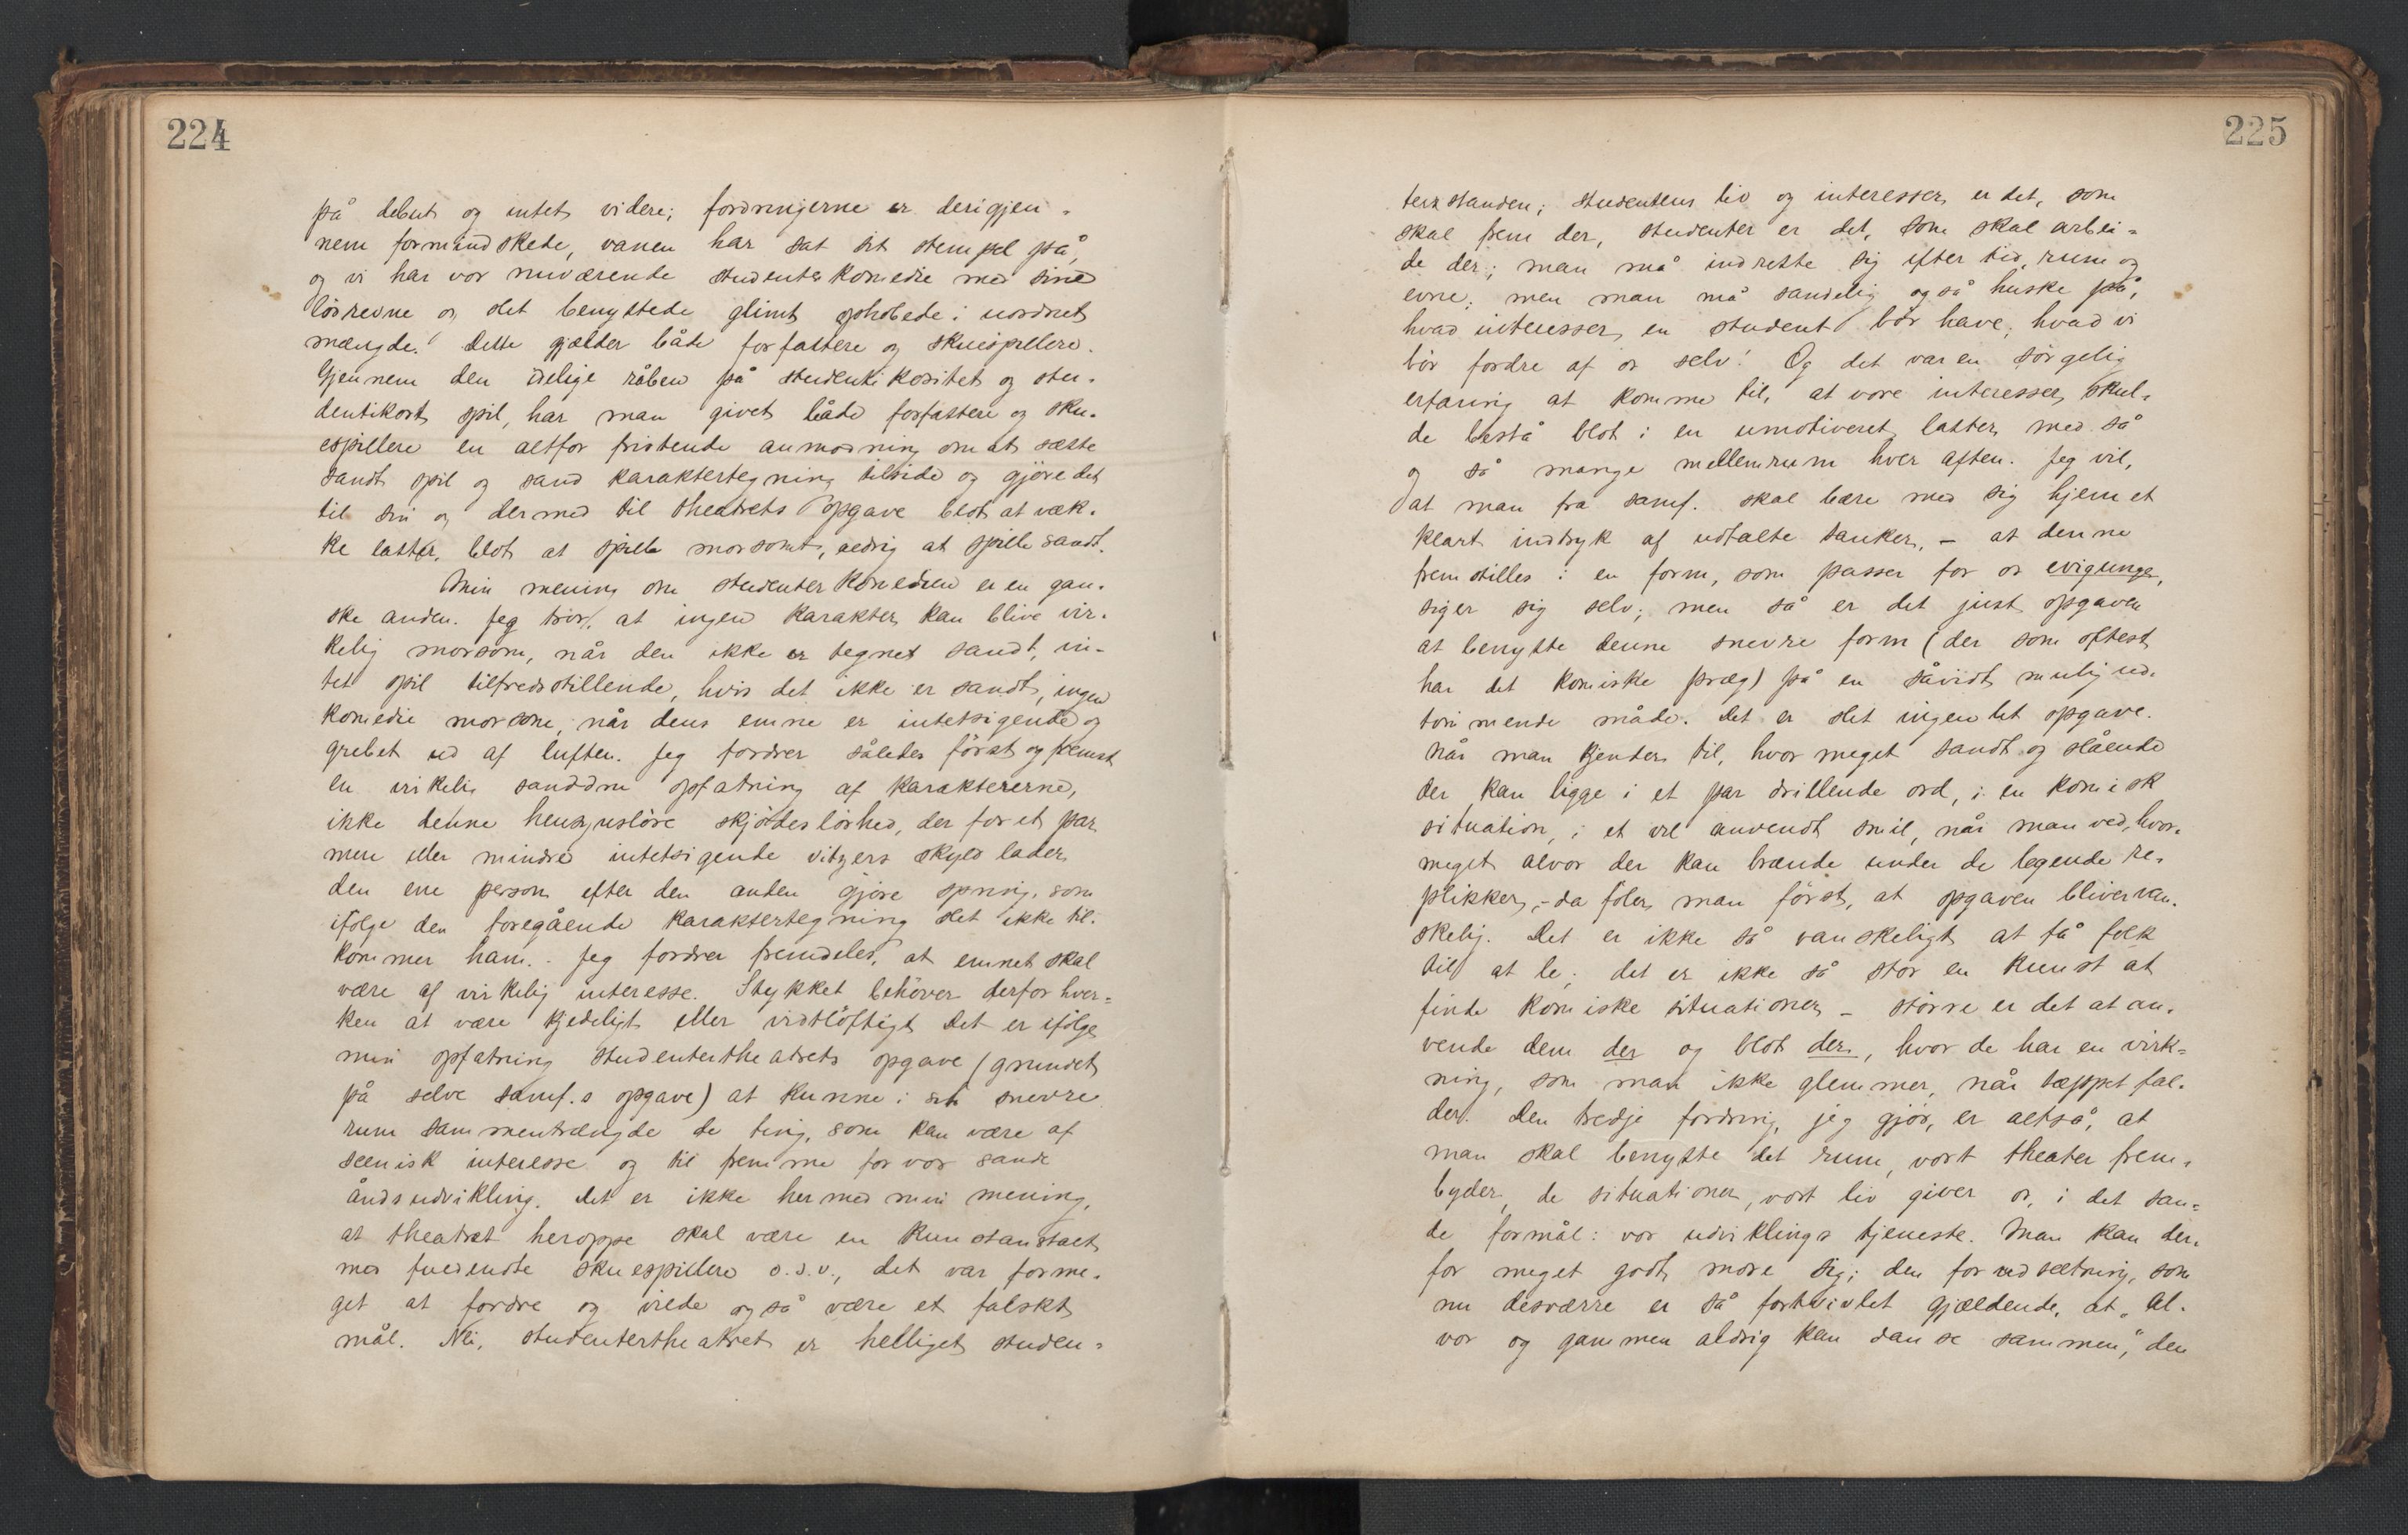 224
på debut og intet videre; fordringerne er derigjen-
nem formindskede, vanen har sat sit stempel på,
og vi har vor nuværende studenterkomedie med sine
løsrevne og slet benyttede glimt ophobede i uordnet
mængde. Dette gjælder både forfattere og skuespillere.
Gjennem den idelige råben på studentikositet og stu-
dentikost spil, har man givet både forfattere og sku-
espillere en altfor fristende anmodning om at sætte
sandt spil og sand karaktertegning tilside og gjøre det
til sin og dermed til theatrets opgave blot at væk-
ke latter, blot at spille morsomt, aldrig at spille sandt.
Min mening om studenterkomedien er en gan-
ske anden. Jeg tror, at ingen karakter kan blive vir-
kelig morsom, når den ikke er tegnet sandt, in-
tet spil tilfredsstillende, hvis det ikke er sandt, ingen
komedie morsom, når dens emne er intetsigende og
grebet ud af luften. Jeg fordrer således først og fremst
en virkelig sanddru opfatning af karaktererne,
ikke denne hensynsløse skjødesløshed, der for et par
mere eller mindre intetsigende vitzers skyld lader
den ene person efter den anden gjøre spring, som
ifølge den foregående karaktertegning slet ikke til-
kommer ham. - Jeg fordrer fremdeles, at emnet skal
være af virkelig interesse. Stykket behøver derfor hver-
ken at være kjedeligt eller vidtløftigt. Det er ifølge
min opfatning studentertheatrets opgave (grundet
på selve samf.s opgave) at kunne i sit snevre
rum sammentrængde de ting, som kan være af
scenisk interesse og til fremme for vor sande
åndsudvikling. Det er ikke hermed min mening,
at theatret heroppe skal være en kunstanstalt
med fuldendte skuespillere o.s.v., det var forme-
get at fordre og vilde også være et falskt
mål. Nei, studentertheatret er helliget studen-
225
terstanden; studentens liv og interesser er det, som
skal frem der, studenter er det, som skal arbei-
de der; man må indrette sig efter tid, rum og
evne; men man må sandelig også huske på,
hvad interesser en student bør have, hvad vi
bør fordre af os selv! Og det var en sørgelig
erfaring at komme til, at vore interesser skul-
de bestå blot i en umotiveret latter med så
og så mange mellemrum hver aften. Jeg vil,
at man fra samf. skal bære med sig hjem et
klart indtryk af udtalte tanker, – at denne
fremstilles i en form, som passer for os evigunge,
siger sig selv; men så er det just opgaven
at benytte denne snevre form (der som oftest
har det komiske præg) på en såvidt mulig ud-
tømmende måde. Det er slet ingen let opgave.
Når man kjender til, hvor meget sandt og slående
der kan ligge i et par drillende ord, i en komisk
situation, i et vel anvendt smil, når man ved, hvor-
meget alvor der kan brænde under de legende re-
plikker, – da føler man først, at opgaven bliver van-
skelig. Det er ikke så vanskeligt at få folk
til at le; det er ikke så stor en kunst at
finde komiske situationer – større er det at an-
vende dem der og blot der, hvor de har en virk-
ning, som man ikke glemmer, når tæppet fal-
der. Den tredje fordring, jeg gjør, er altså, at
man skal benytte det rum, vort theater frem-
byder, de situationer, vort liv giver os, i det san-
de formål: vor udviklings tjeneste. Man kan der-
for meget godt more sig; den forudsætning, som
nu desværre er så fortvivlet gjældende, at „al-
vor og gammen aldrig kan danse sammen,“ den